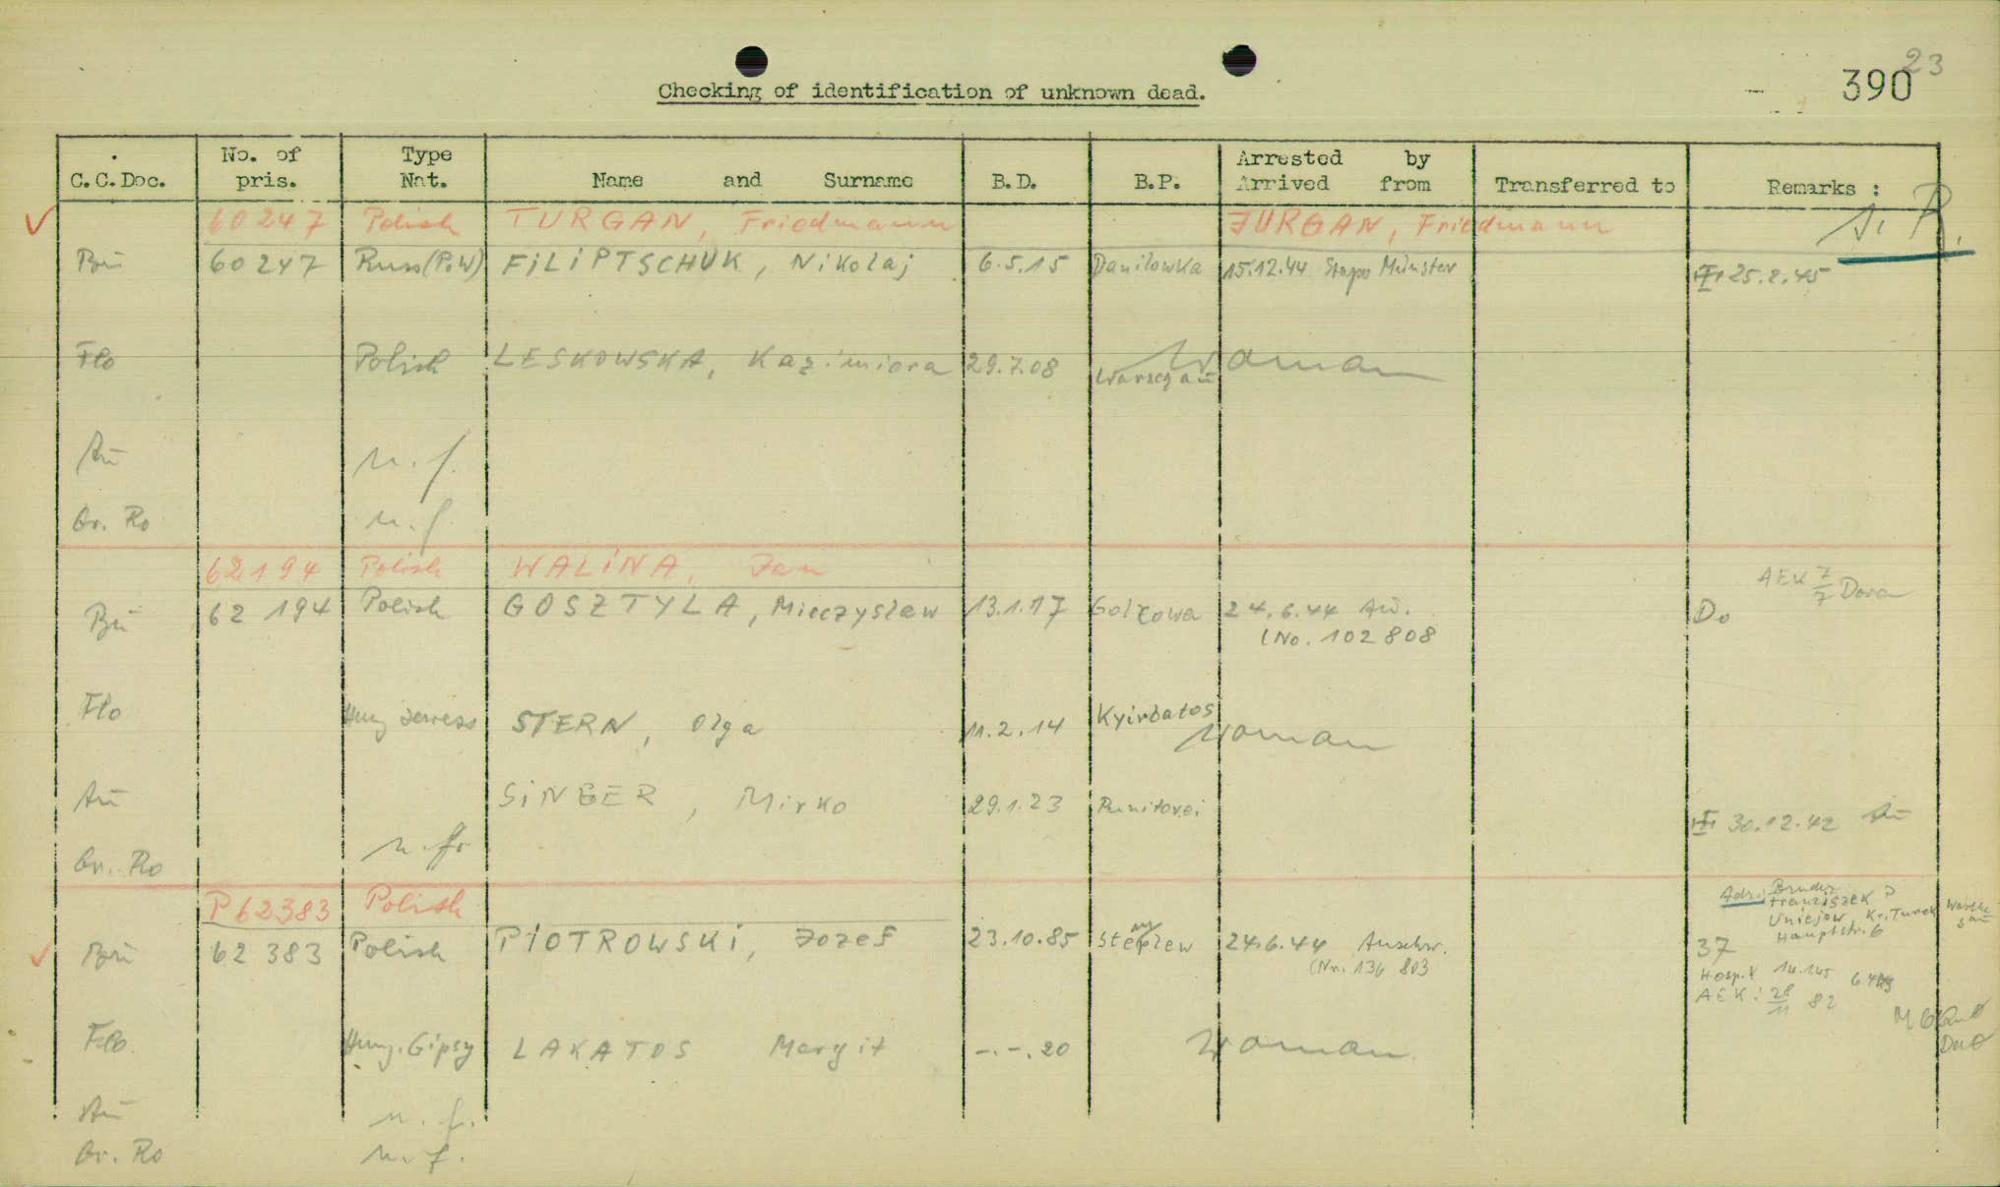 23
390
Checking of identification of unknown dead.
C.C.Doc. No. of pris. Type Nat. Name and Surname B.D. B.P. Arrested by Arrived from Transferred to Remarks :
60247 Polish TURGAN, Friedmann JURGAN, Friedmann
Bu 60247 Russ(P.W) FiLiPTSCHUK, Nikolaj 6.5.15 Danilowka 15.12.44 Stapo Münster 25.2.45
Flo Polish LESKOWSKA, Kazimiera 29.7.08 Warschau Woman
Au n.f.
Gr. Ro n.f.
62194 Polish WALiNA, Jan
AEK 7/7 Dora
Bu 62 194 Polish GOSZTYLA, Mieczyslaw 13.1.17 Golcowa 24.6.44 Au. Do
(No. 102808
Flo Hung Jewess STERN, Olga 11.2.14 Kyirbatos Woman
Au SiNGER, Mirko 29.1.23 30.12.42 Au
Gr. Ro n.f.
P62383 Polish
Adr. Bruder
Franziszek P
Uniejow, Kr. Turek
Hauptstr. 6
Bu 62 383 Polish PiOTROWSKi, Jozef 23.10.85 24.6.44 Auschw. 37
(Nr. 136 803
Hosp. X 14.1.45 64kg
AEK: 28/11 82
Flo Hung. Gipsy LAKATOS Margit -.-.20 Woman
Au n.f.
Gr. Ro n.f.